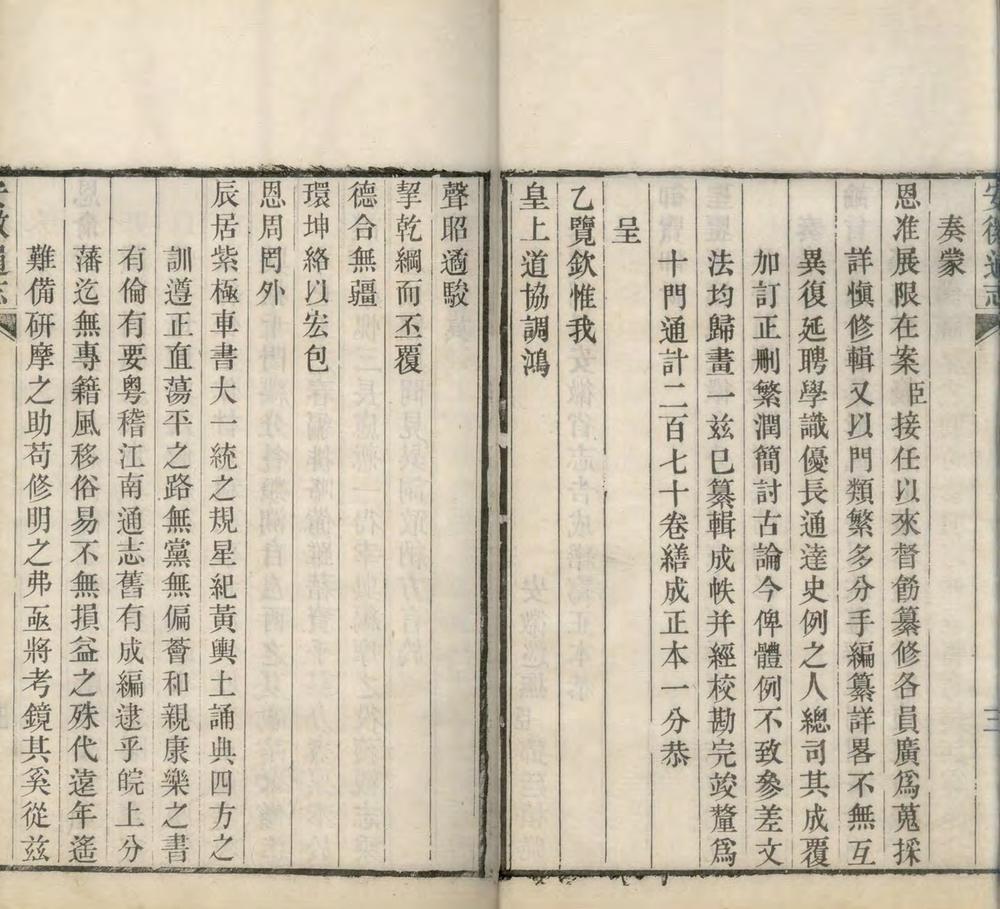 奏蒙
恩准展限在案臣接任以來督飭纂修各員廣爲蒐採
詳愼修輯又以門類繁多分手編纂詳畧不無互
異復延聘學識優長通達史例之人總司其成覆
加訂正刪繁潤簡討古論今俾體例不致參差文
法均歸畫一茲已纂輯成帙并經校勘完竣釐爲
十門通計二百七十卷繕成正本一分恭
呈
乙覽欽惟我
皇上道協調鴻
聲昭遹駿
挈乾綱而丕覆
德合無疆
環坤絡以宏包
恩周罔外
辰居紫極車書大一統之規星紀黃輿土誦典四方之
訓遵正直蕩平之路無黨無偏薈和親康樂之書
有倫有要粵稽江南通志舊有成編逮乎皖上分
藩迄無專籍風移俗易不無損益之殊代遠年遙
難備研摩之助苟修明之弗亟將考鏡其奚從茲